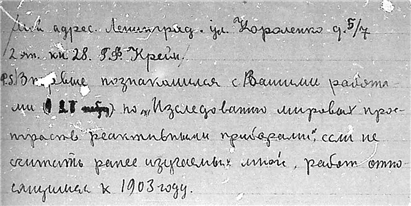 Мой адрес. Ленинград. ул. Короленко д. 5/7
2 эт. кв 28. Г.Ф. Крейн.
P.S. Впервые познакомился с Вашими работа-
ми по „Изследованию мировых прос-
транств реактивными приборами", если не
считать ранее изучаемых мной, работ отно-
сящихся к 1903 году.